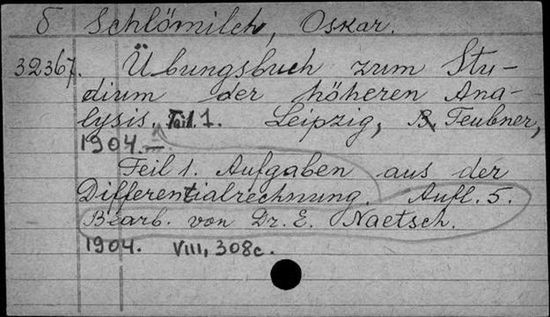 б Schlömilch, Oskar.
32367. Übungsbuch zum Stu-
dium der höheren Ana-
lysis, Teil 1. Leipzig, B. Teubner,
1904.—
Teil 1. Aufgaben aus der
Differentialrechnung. Aufl. 5.
Bearb. von Dr. E. Naetsch.
1904. VIII, 308c.